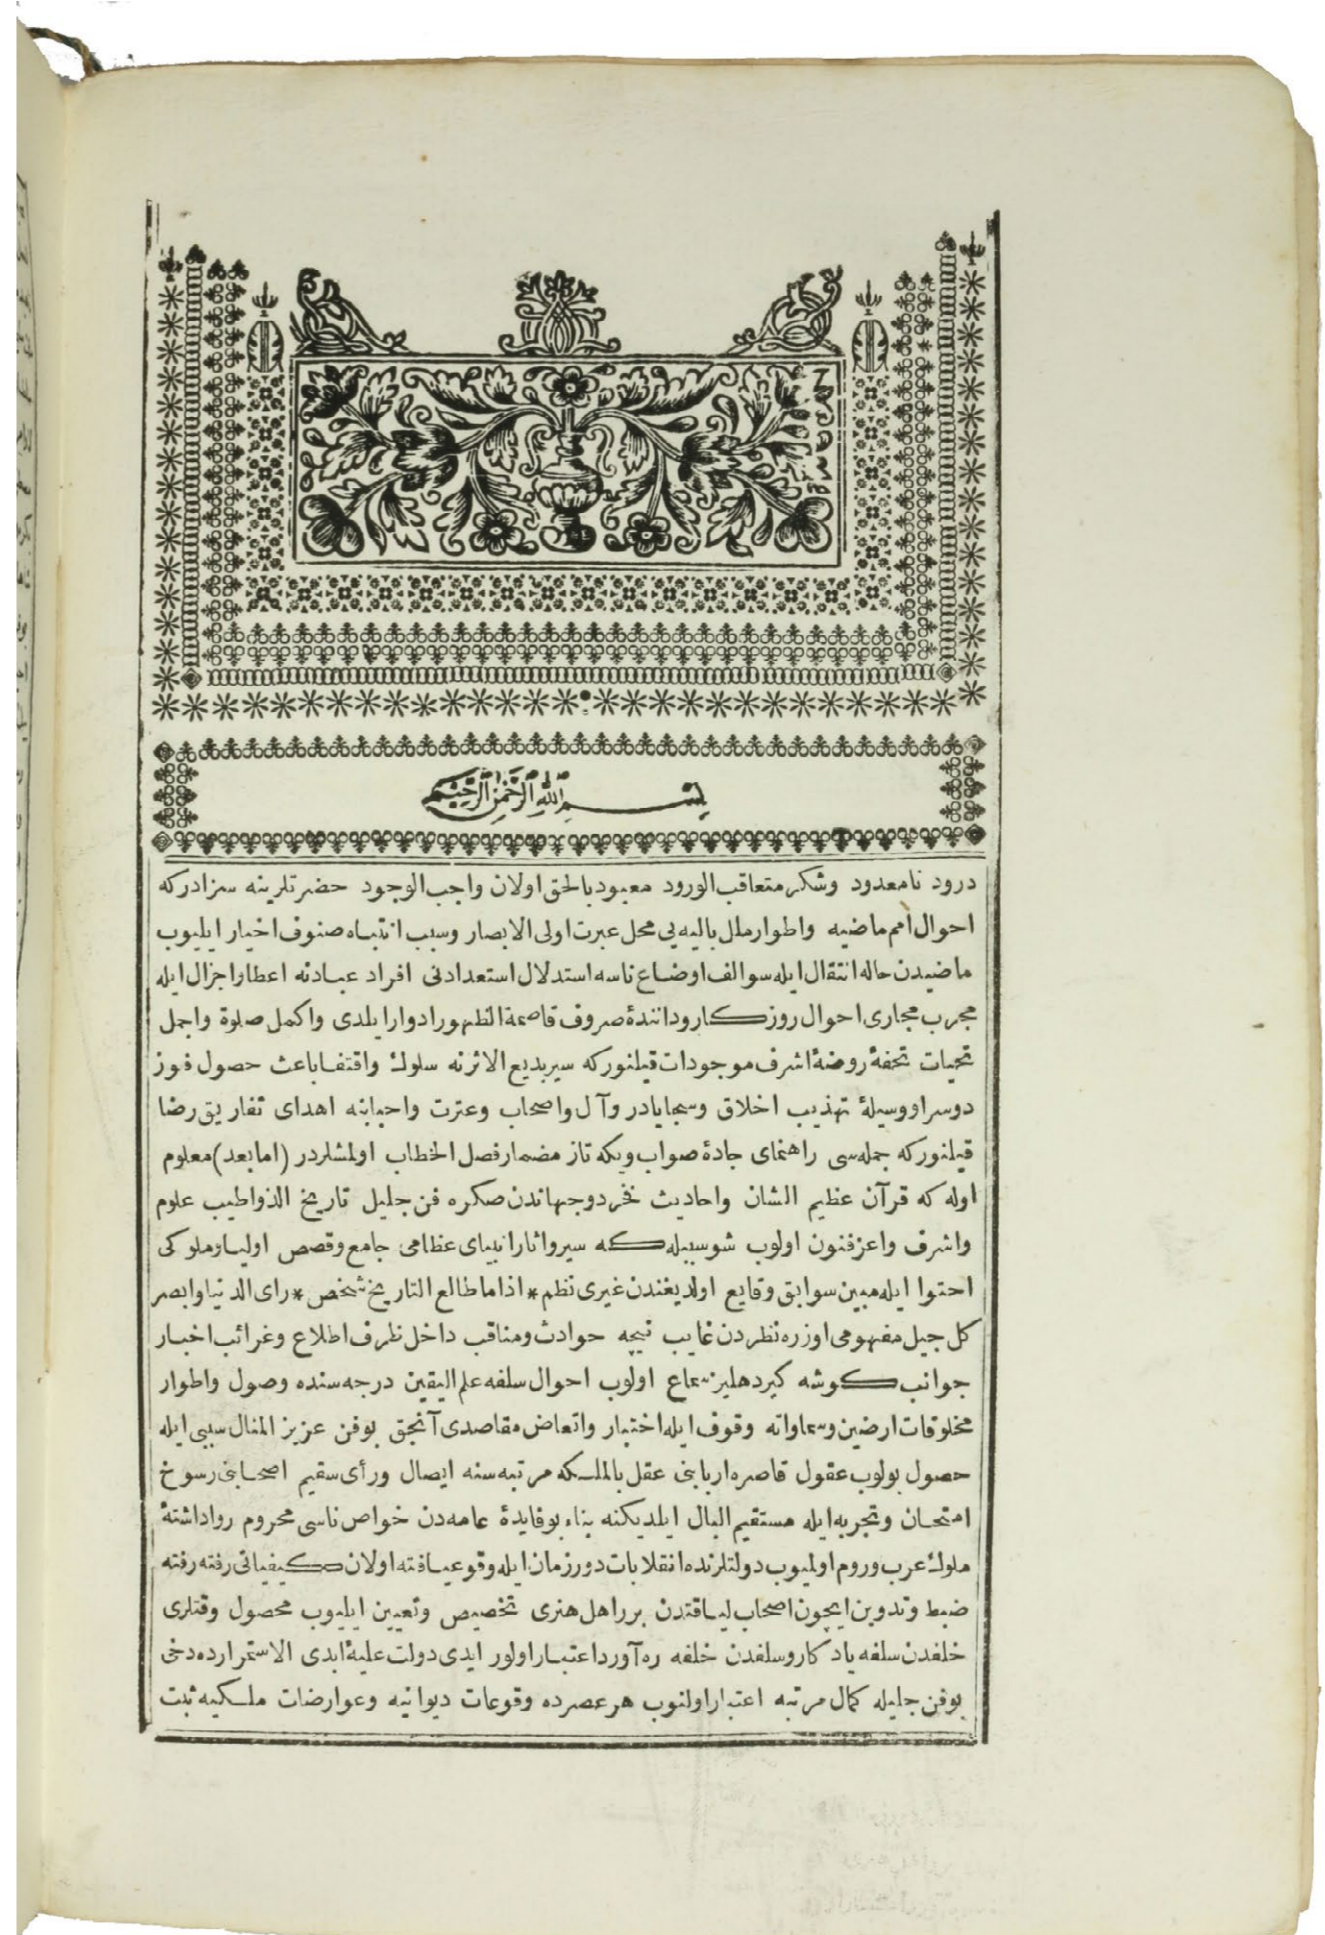 بسم الله الرحمن الرحيم
درود نامعدود وشكر متعاقب الورود معبود بالحق اولان واجب الوجود حضرتلرينه سزادركه
احوال امم ماضيه واطوار ملل باليه يى محل عبرت اولى الابصار وسبب انتباه صنوف اخيار ايليوب
ماضيدن حاله انتقال ايله سوالف اوضاع ناسه استدلال استعدادنى افراد عبادنه اعطا واجزال ايله
مجرب مجارى احوال روزكار ودانندهٔ صروف قاصمة الظهور ادوار ايلدى واكمل صلوة واجمل
تحيات تحفهٔ روضهٔ اشرف موجودات قيلنوركه سير بديع الاثرنه سلوك واقتفا باعث حصول فوز
دوسرا ووسيلهٔ تهذيب اخلاق وسجايادر وآل واصحاب وعترت واحبابنه اهداى تفاريق رضا
قيلنوركه جمله سى راهنماى جادهٔ صواب ويكه تاز مضمار فصل الخطاب اولمشلردر (اما بعد) معلوم
اوله كه قرآن عظيم الشان واحاديث فخر دوجهاندن صكره فن جليل تاريخ الذ واطيب علوم
واشرف واعز فنون اولوب شوسببله كه سير واثار انبياى عظامى جامع وقصص اوليا وملوكى
احتوا ايله مبين سوابق وقايع اولديغندن غيرى نظم * اذا ما طالع التاريخ شخص * راى الدنيا وابصر
كل جيل مفهومى اوزره نظردن غايب نيچه حوادث ومناقب داخل ظرف اطلاع وغرائب اخبار
جوانب كوشه كير دهليز سماع اولوب احوال سلفه علم اليقين درجه سنده وصول واطوار
مخلوقات ارضين وسماواته وقوف ايله اختبار واتعاض مقاصدى آنجق بوفن عزيز المنال سببى ايله
حصول بولوب عقول قاصره اربابنى عقل بالملكه مرتبه سنه ايصال ورأى سقيم اصحابنى رسوخ
امتحان وتجربه ايله مستقيم البال ايلديكنه بناء بوفايدهٔ عامه دن خواص ناسى محروم رواداشتهٔ
ملوك عرب وروم اولميوب دولتلرنده انقلابات دور زمان ايله وقوعيافته اولان كيفياتى رفته رفته
ضبط وتدوين ايچون اصحاب لياقتدن برر اهل هنرى تخصيص وتعيين ايليوب محصول وقتلرى
خلفدن سلفه يادكار وسلفدن خلفه ره آورد اعتبار اولور ايدى دولت عليهٔ ابدى الاستمرارده دخى
بوفن جليله كمال مرتبه اعتبار اولنوب هر عصرده وقوعات ديوانيه وعوارضات ملكيه ثبت